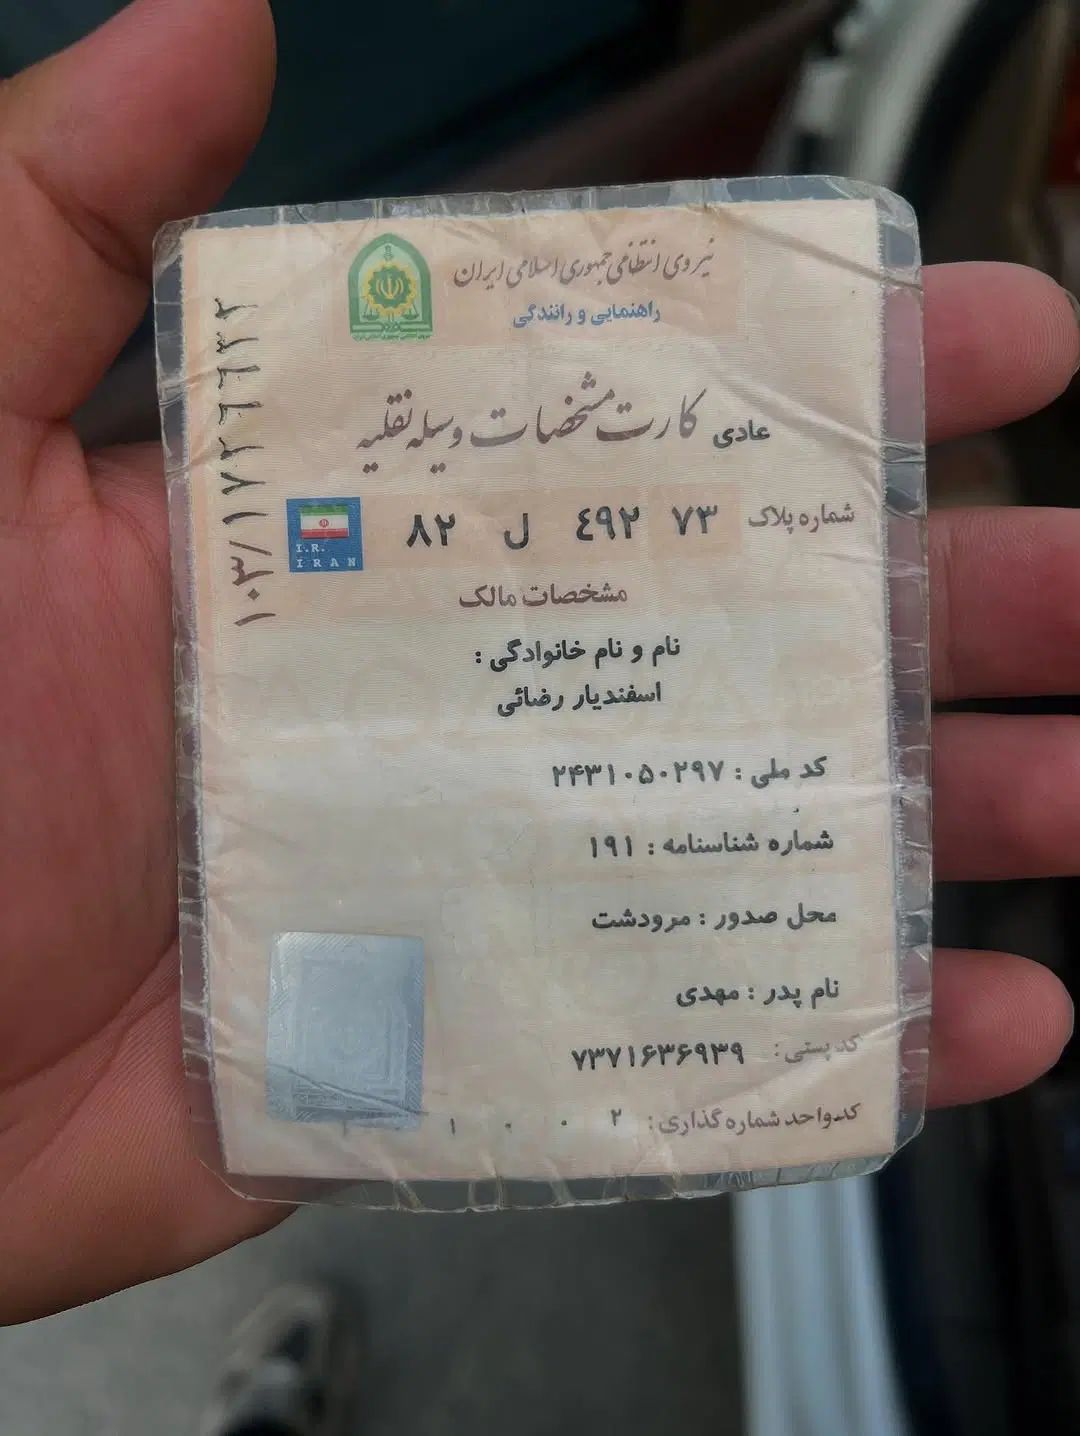 نیروی انتظامی جمهوری اسلامی ایران
راهنمایی و رانندگی
کارت مشخصات وسیله نقلیه عادی
شماره پلاک ۷۳ ۴۹۲ ل ۸۲
I.R.
IRAN
مشخصات مالک
نام و نام خانوادگی :
اسفندیار رضائی
کد ملی : ۲۴۳۱۰۵۰۲۹۷
شماره شناسنامه : ۱۹۱
محل صدور : مرودشت
نام پدر : مهدی
کد پستی: ۷۳۷۱۶۳۶۹۳۹
کدواحد شماره گذاری: ۲ ۰ ۰ ۱